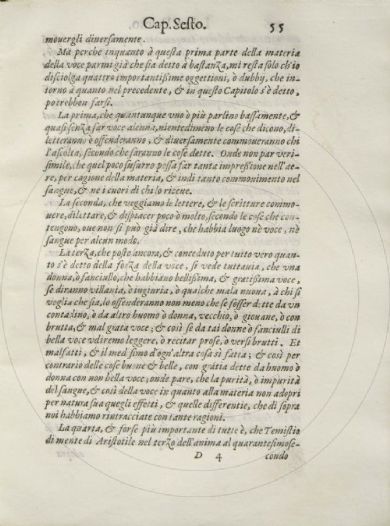 Cap. Sesto. 55
mouergli diuersamente.
Ma perche inquanto à questa prima parte della materia
della voce parmi già che sia detto à bastanza, mi resta solo ch'io
disciolga quattro importantissime oggettioni, ò dubby, che in-
torno à quanto nel precedente, & in questo Capitolo s'è detto,
potrebbon farsi.
La prima, che quantunque vno ò più parlino bassamente, &
quasi senza far voce alcuna, nientedimeno le cose che dicono, di-
letteranno ò offenderanno, & diuersamente commoueranno chi
l'ascolta, secondo che saranno le cose dette. Onde non par veri-
simile, che quel poco susurro possa far tanta impressione nell'ae-
re, per cagione della materia, & indi tanto commouimento nel
sangue, & ne i cuori di chi lo riceue.
La seconda, che veggiamo le lettere, & le scritture commo-
uere, dilettare, & dispiacer poco ò molto, secondo le cose che con-
tengono, oue non si può già dire, che habbia luogo nè voce, nè
sangue per alcun modo.
La terza, che posto ancora, & conceduto per tutto vero quan-
to s'è detto della forza della voce, si vede tuttauia, che vna
donna, ò fanciullo, che habbiano bellissima, & gratissima voce,
se diranno villania, ò ingiuria, ò qualche mala nuoua, à chi si
voglia che sia, lo offenderanno non meno che se fosser dette da vn
contadino, ò da altro huomo ò donna, vecchio, ò giouane, ò con
brutta, & mal grata voce; & così se da tai donne ò fanciulli di
bella voce vdiremo leggere, ò recitar prose, ò versi brutti. Et
malfatti, & il medesimo d'ogn'altra cosa sì fatta; & così per
contrario delle cose buone & belle, con gratia dette da huomo ò
donna con non bella voce; onde pare, che la purità, ò impurità
del sangue, & così della voce in quanto alla materia non adopri
per natura sua quegli effetti, & quelle differentie, che di sopra
noi habbiamo rintracciate con tante ragioni.
La quarta, & forse più importante di tutte è, che Temistio
di mente di Aristotile nel terzo dell'anima al quarantesimose-
D 4 condo